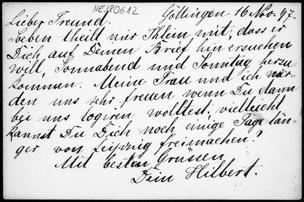 NE190612
Lieber Freund. Göttingen 16 Nov. 97.
Soeben theilt mir Klein mit, dass er
Dich auf Deinen Brief hin ersuchen
will, Sonnabend und Sonntag herzu-
kommen. Meine Frau und ich wür-
den uns sehr freuen wenn Du dann
bei uns logiren wolltest; vielleicht
kannst Du Dich noch einige Tage län-
ger von Leipzig freimachen?
Mit besten Grüssen
Dein Hilbert.